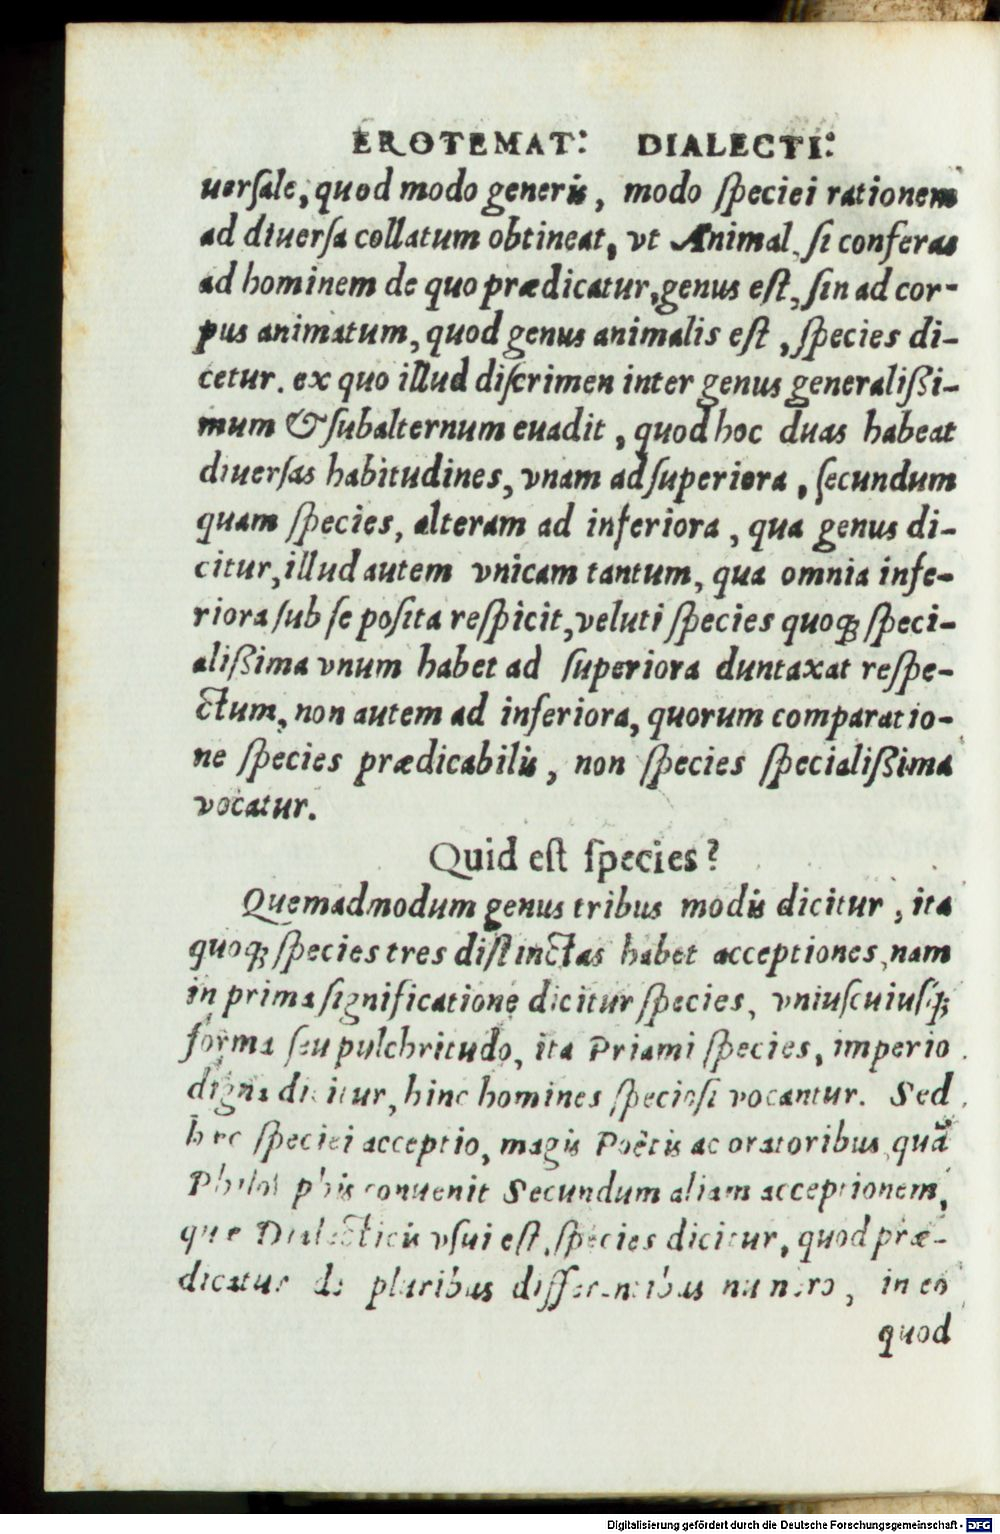 EROTEMAT: DIALECTI:
uersale, quod modo generis, modo speciei rationem
ad diuersa collatum obtineat, vt Animal, si conferas
ad hominem de quo prædicatur, genus est, sin ad cor-
pus animatum, quod genus animalis est, species di-
cetur. ex quo illud discrimen inter genus generalißi-
mum & subalternum euadit, quod hoc duas habeat
diuersas habitudines, vnam ad superiora, secundum
quam species, alteram ad inferiora, qua genus di-
citur, illud autem vnicam tantum, qua omnia infe-
riora sub se posita respicit, veluti species quoq; speci-
alißima vnum habet ad superiora duntaxat respe-
ctum, non autem ad inferiora, quorum comparatio-
ne species prædicabilis, non species specialißima
vocatur.
Quid est species?
Quemadmodum genus tribus modis dicitur, ita
quoq; species tres distinctas habet acceptiones, nam
in prima significatione dicitur species, vniuscuiusq;
forma seu pulchritudo, ita Priami species, imperio
digna dicitur, hinc homines speciosi vocantur. Sed
hec speciei acceptio, magis Poëtis ac oratoribus, quā
Philosophis conuenit Secundum aliam acceptionem,
que Dialecticis vsui est, species dicitur, quod præ-
dicatur de pluribus differentibus numero, in eo
quod
Digitalisierung gefördert durch die Deutsche Forschungsgemeinschaft - DFG